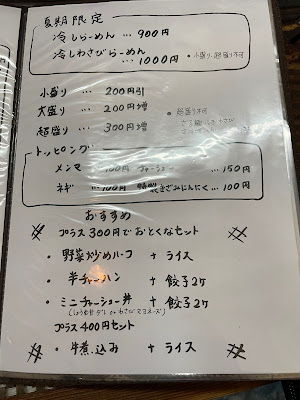 夏期限定
冷しらーめん … 900円
冷しわさびらーめん
… 1000円 ・小盛り、超盛り不可
小盛り … 200円引
大盛り … 200円増
超盛り … 300円増
・超盛り不可
トッピング
メンマ 100円 チャーシュー … 150円
ネギ … 100円 きざみにんにく … 100円
おすすめ
プラス300円でおとくなセット
・野菜炒めハーフ + ライス
・半チャーハン + 餃子2ケ
・ミニチャーシュー丼 + 餃子2ケ
(しょうゆダレ or わさびマヨネーズ)
プラス400円セット
・牛煮込み + ライス